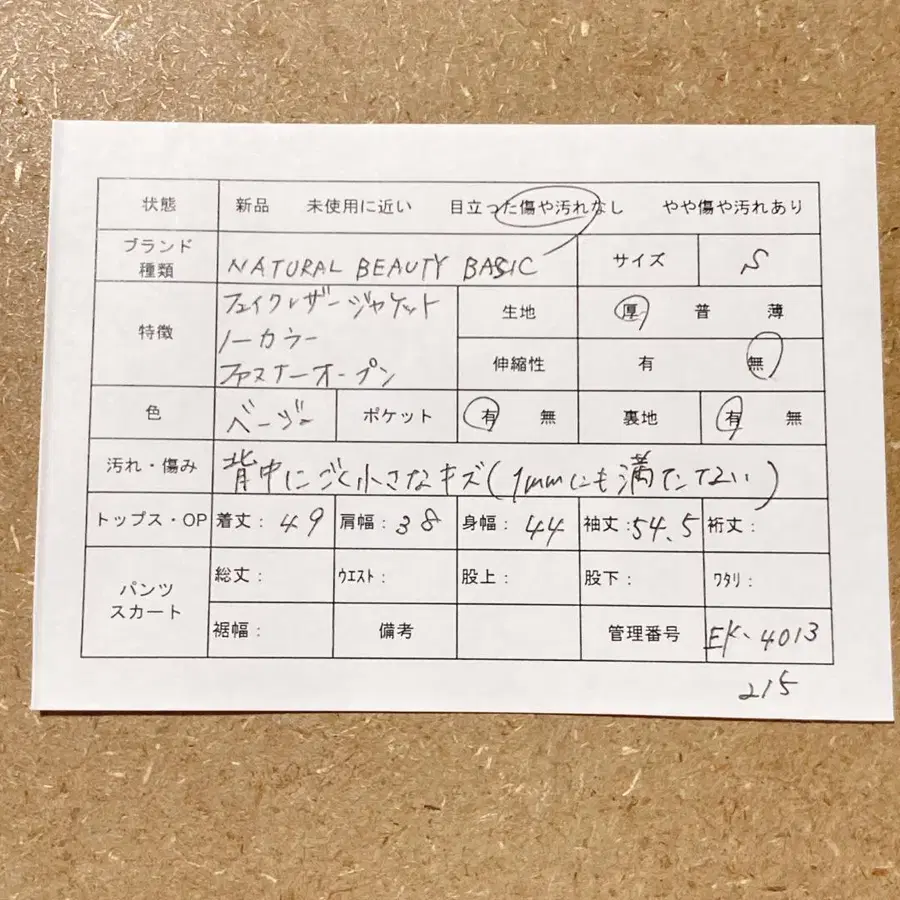 状態 新品 未使用に近い 目立った傷や汚れなし やや傷や汚れあり
ブランド種類 NATURAL BEAUTY BASIC サイズ S
特徴 フェイクレザージャケット
ノーカラー
ファスナーオープン
生地 厚 普 薄
伸縮性 有 無
色 ベージュ ポケット 有 無 裏地 有 無
汚れ・傷み 背中にごく小さなキズ(1mmにも満たない)
トップス・OP 着丈: 49 肩幅: 38 身幅: 44 袖丈: 54.5 裄丈:
パンツ
スカート
総丈: ウエスト: 股上: 股下: ワタリ:
裾幅: 備考 管理番号 EK-4013
215